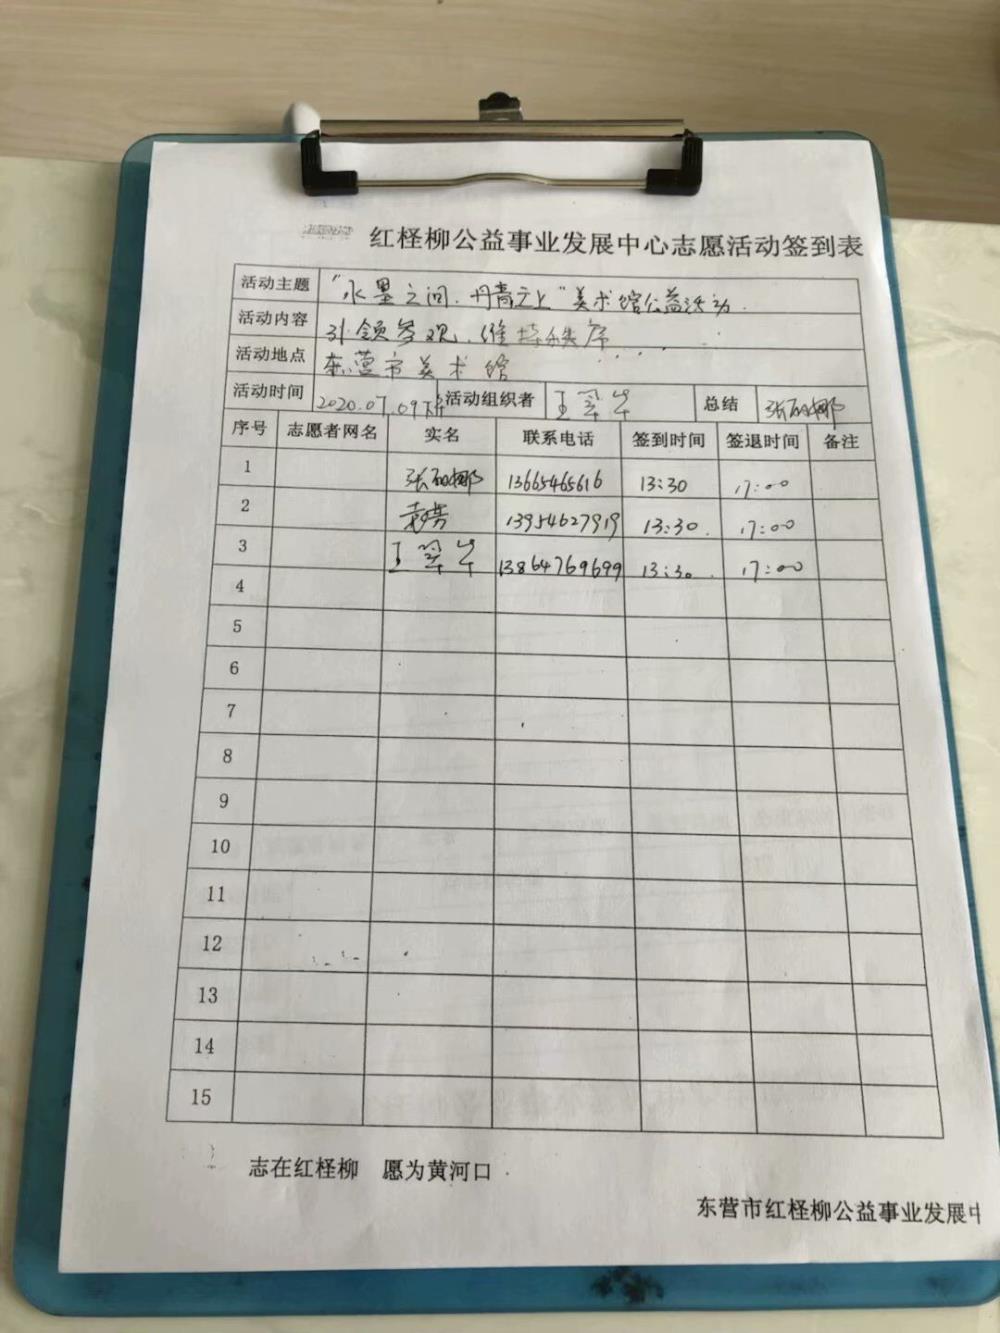 红柽柳公益事业发展中心志愿活动签到表
活动主题 "水墨之间、丹青之上"美术馆公益活动.
活动内容 引领参观、维持秩序
活动地点 东营市美术馆
活动时间 2020.07.09下午 活动组织者 王翠华 总结 张丽娜
序号 志愿者网名 实名 联系电话 签到时间 签退时间 备注
1 张丽娜 13665465616 13:30 17:00
2 袁芳 13954627919 13:30. 17:00
3 王翠华 13864769699 13:30. 17:00
4
5
6
7
8
9
10
11
12
13
14
15
志在红柽柳 愿为黄河口
东营市红柽柳公益事业发展中